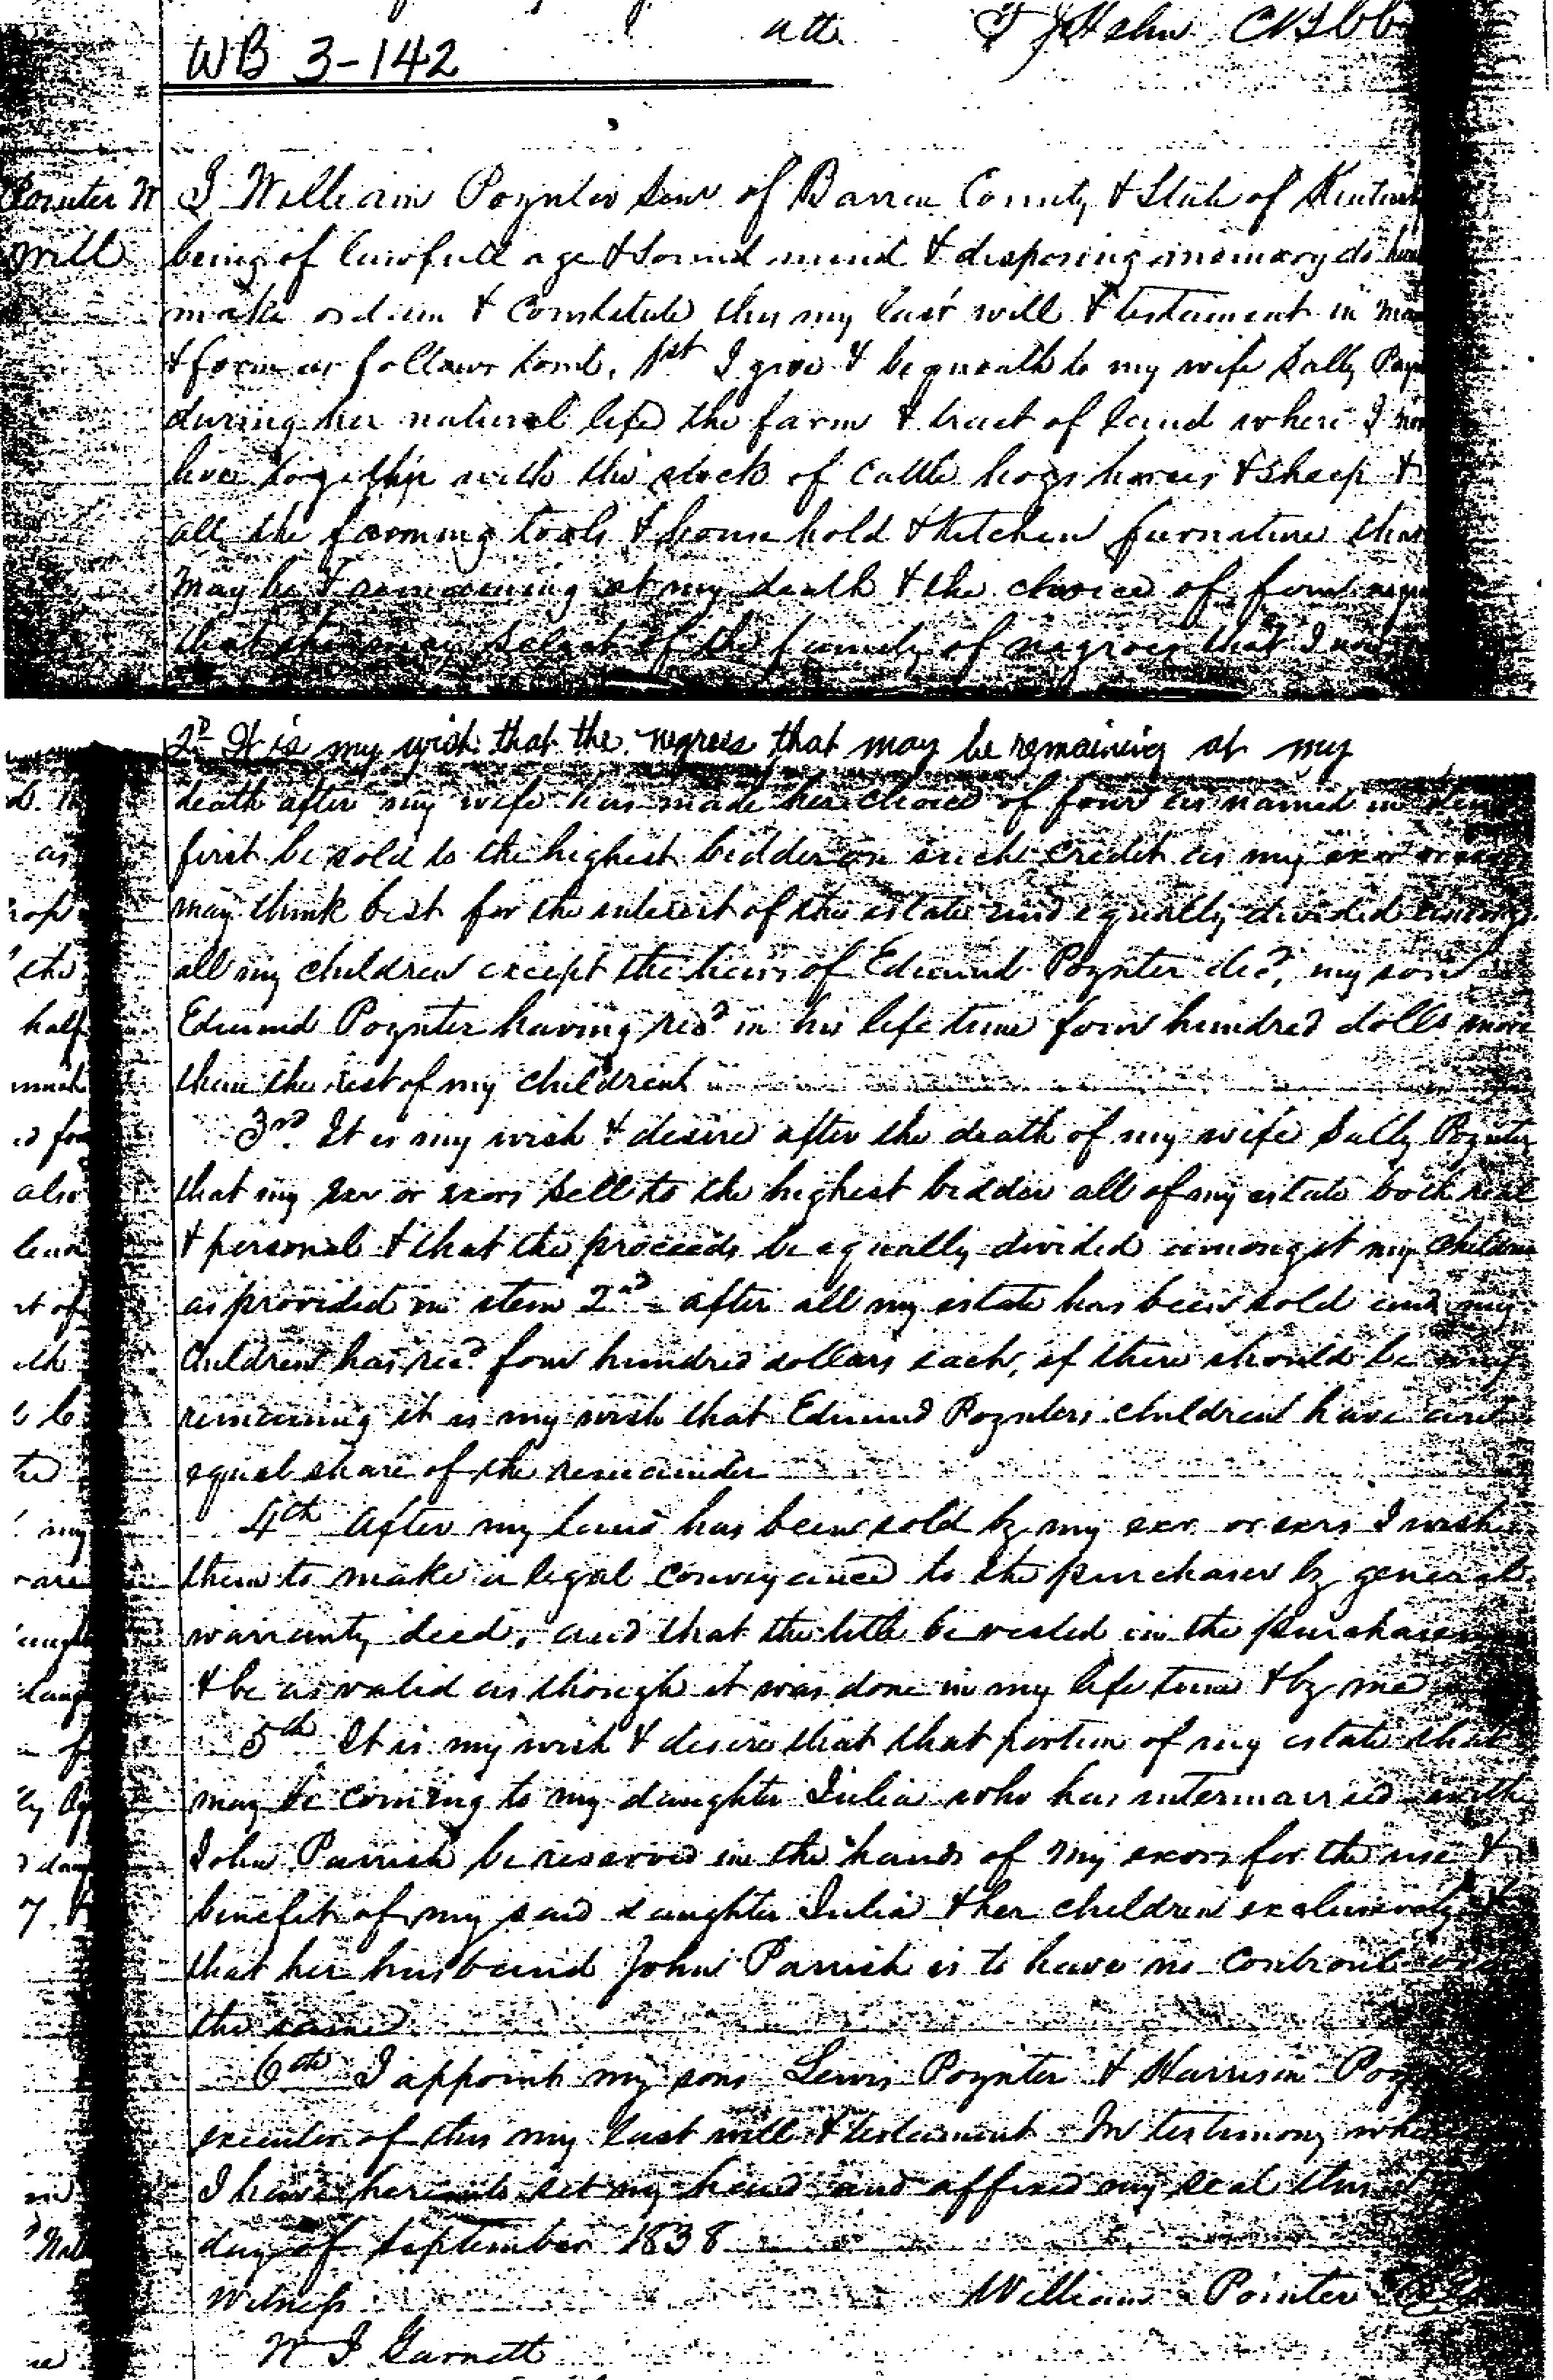 att
WB 3-142
Pointer W
will
I William Poynter Senr of Barren County & State of
being of lawfull age & Sound mind & disposing memory do
make ordain & Constitute this my last will & testament in
& form as follows towit, 1st I give & bequeath to my wife Sally
during her natural life the farm & tract of land where I
live together with the stock of Cattle hogs horses & Sheep &
all the farming tools & house hold & Kitchen furniture that
may be & remaining at my death & the choice of four
that she may select of the family of negroes that I now
2D It is my wish that the negroes that may be remaining at my
death after my wife has made her choice of four as named in item
first be sold to the highest bidder on such credit as my exor or
may think best for the interest of the estate and equally divided among
all my children except the heirs of Edmund Poynter decd, my son
Edmund Poynter having recd in his life time four hundred dolls more
than the rest of my children
3rd It is my wish & desire after the death of my wife Sally Poynter
that my Exr or exors Sell to the highest bidder all of my estate both real
& personal & that the proceeds be equally divided amongst my children
as provided in item 2nd - after all my estate has been sold and my
Children has recd four hundred dollars each, if there should be any
remaining it is my wish that Edmund Poynters children have an
equal share of the remainder
4th After my land has been sold by my exr or exrs I wish
them to make a legal conveyance to the purchaser by general
warranty deed, and that the title be vested in the purchaser
& be as valid as though it was done in my life time & by me
5th It is my wish & desire that that portion of my estate that
may be coming to my daughter Julia who has intermarried with
John Parrish be reserved in the hands of my exors for the use &
benefit of my said daughter Julia & her children exclusively &
that her husband John Parrish is to have no controul over
the same
6th I appoint my sons Lewis Poynter & Harrison
executor of this my last will & testament In testimony
I have hereunto set my hand and affixed my seal this
day of September 1838
Witness
William Pointer
W J Garnett